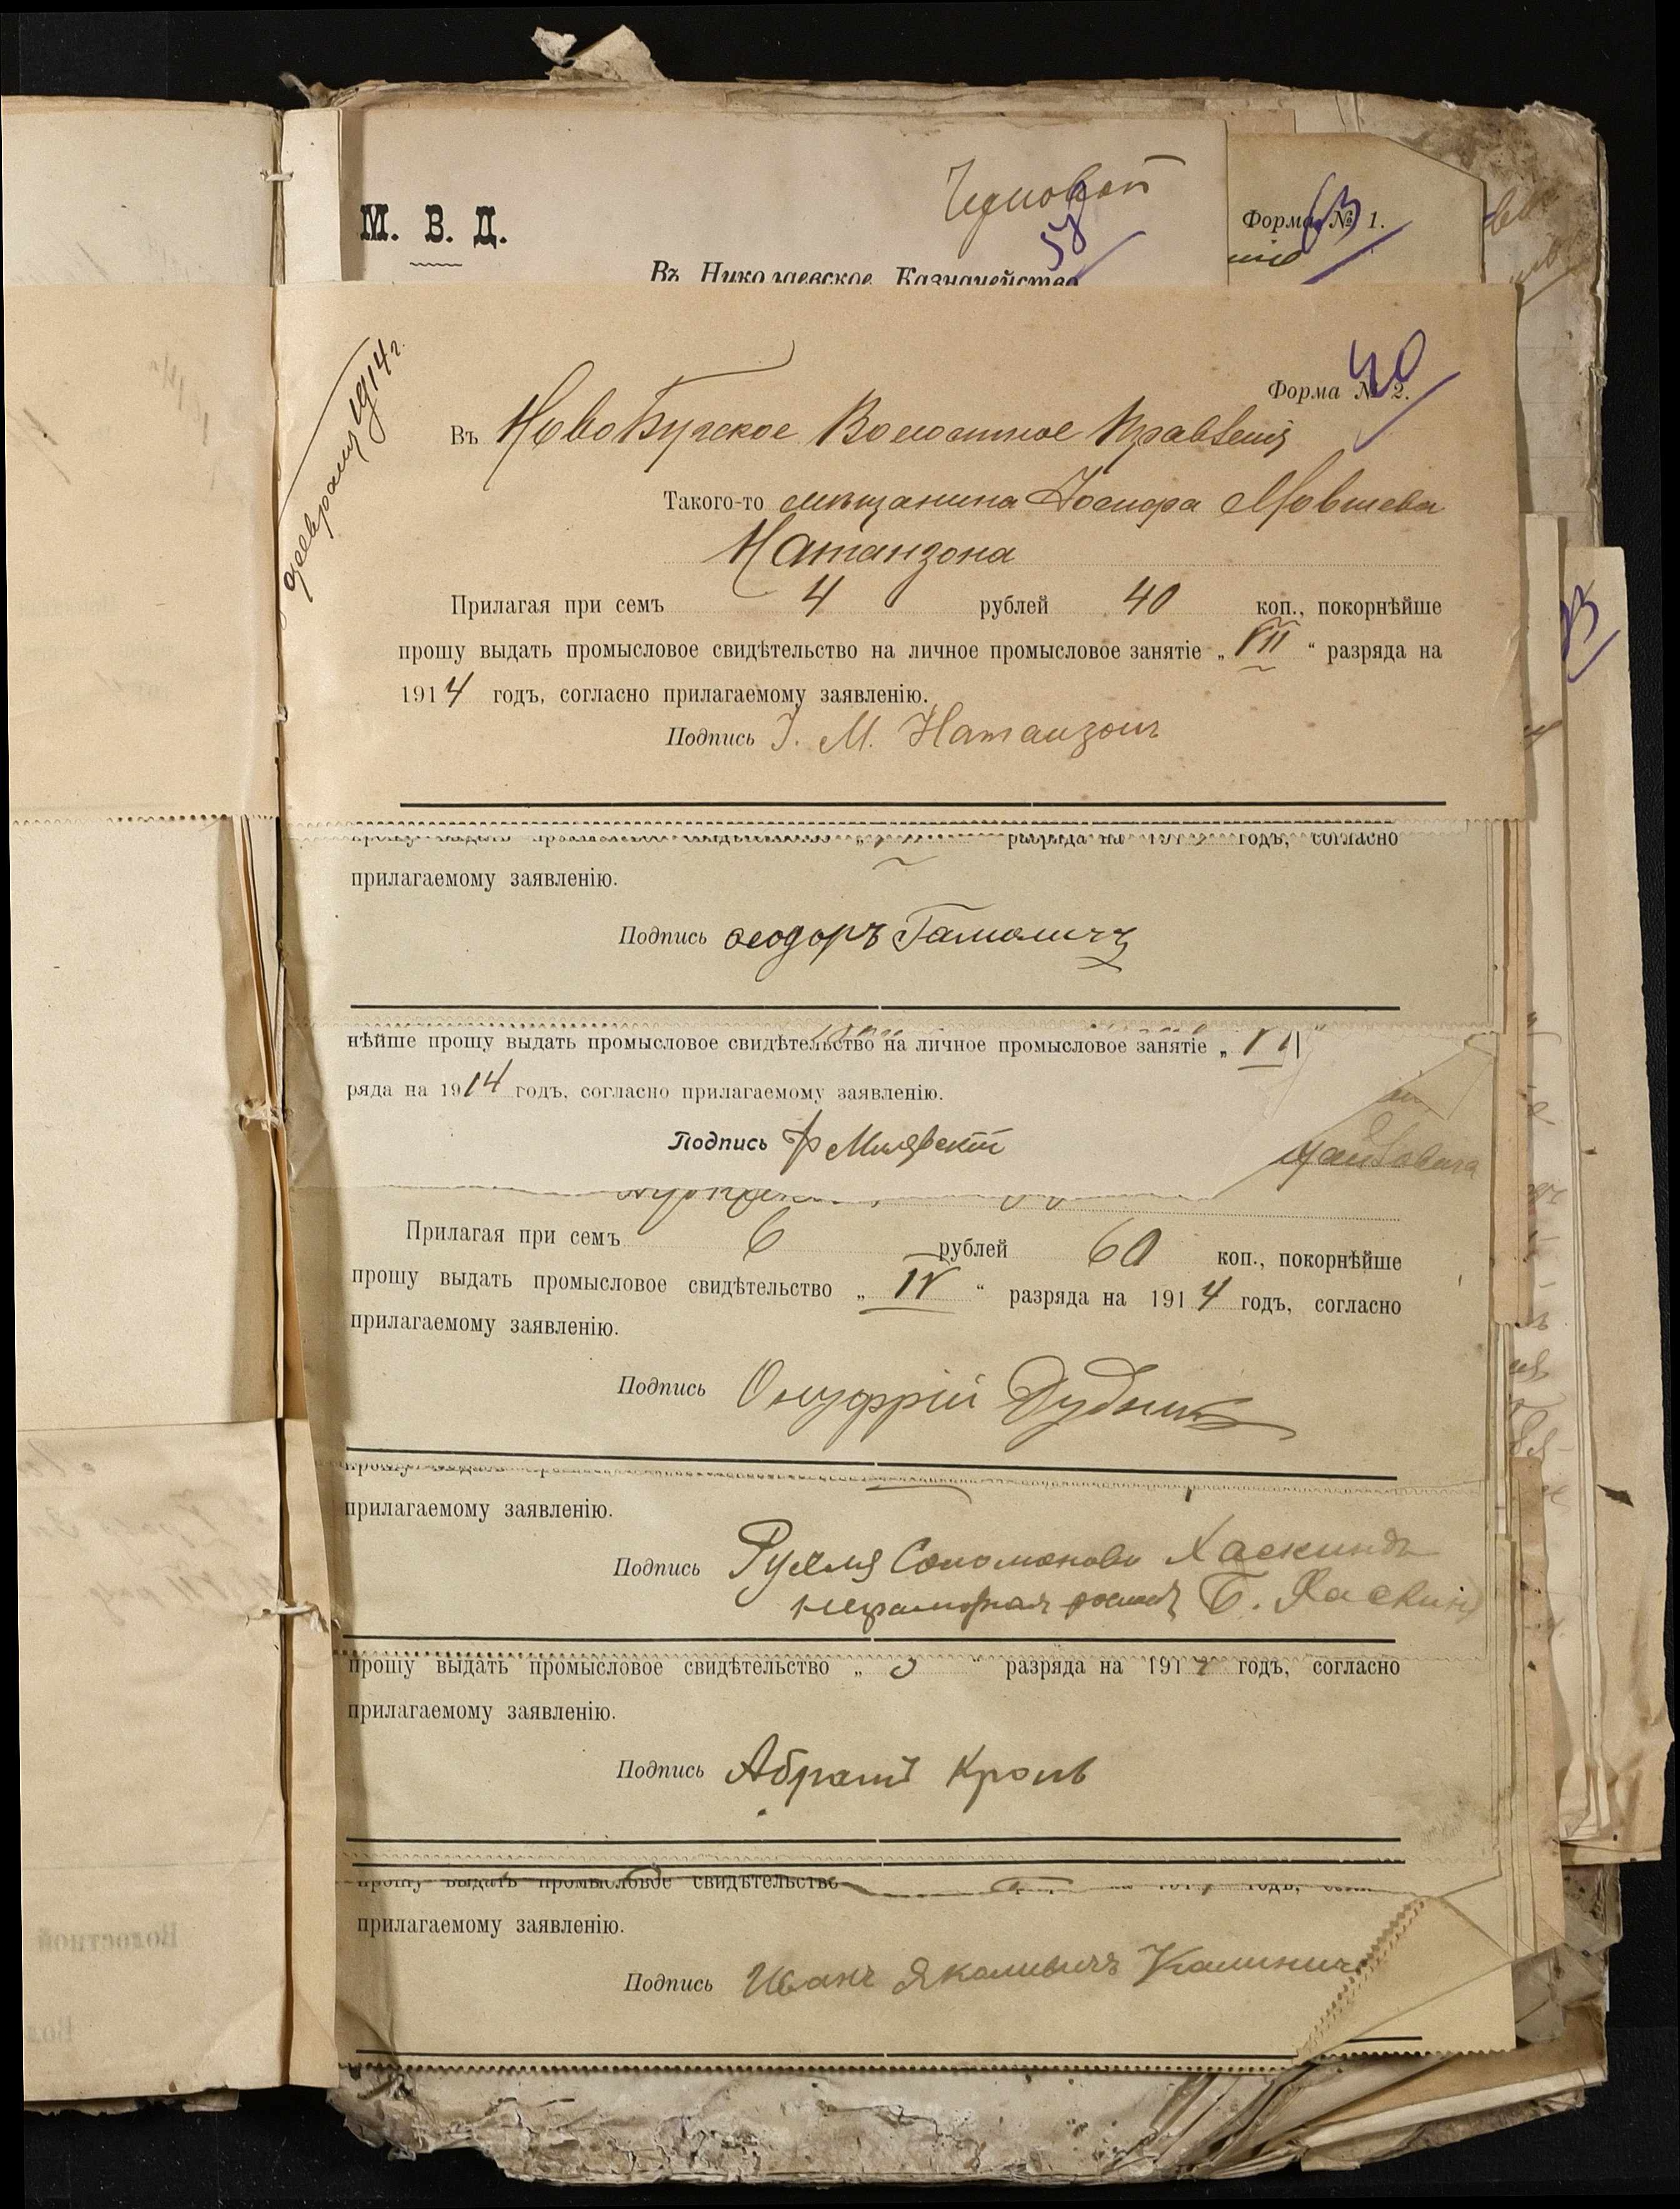 М. В. Д.
58
Въ Николаевское Казначейство
Форма № 1.
63
40
Форма № 2.
1914 г.
Въ НовоБугское Волостное Правленiя
Такого-то мѣщанина Іосифа Мовшева
Натанзона
Прилагая при семъ 4 рублей 40 коп., покорнѣйше
прошу выдать промысловое свидѣтельство на личное промысловое занятіе „ VII “ разряда на
1914 годъ, согласно прилагаемому заявленію.
Подпись І. М. Натанзонъ
прошу выдать промысловое свидѣтельство разряда на 191 годъ, согласно
прилагаемому заявленію.
Подпись Ѳеодоръ
нѣйше прошу выдать промысловое свидѣтельство на личное промысловое занятіе „ VII “
ряда на 1914 годъ, согласно прилагаемому заявленію.
Подпись
Прилагая при семъ 6 рублей 60 коп., покорнѣйше
прошу выдать промысловое свидѣтельство „ IV “ разряда на 1914 годъ, согласно
прилагаемому заявленію.
Подпись Онуфрій Дудник
прилагаемому заявленію.
Подпись Соломонова Хаскиндъ
неграмотная Б. Хаскинд
прошу выдать промысловое свидѣтельство „ 3 “ разряда на 1914 годъ, согласно
прилагаемому заявленію.
Подпись Абрамъ Кроль
прошу выдать промысловое свидѣтельство годъ,
прилагаемому заявленію.
Подпись Иванъ Калинич